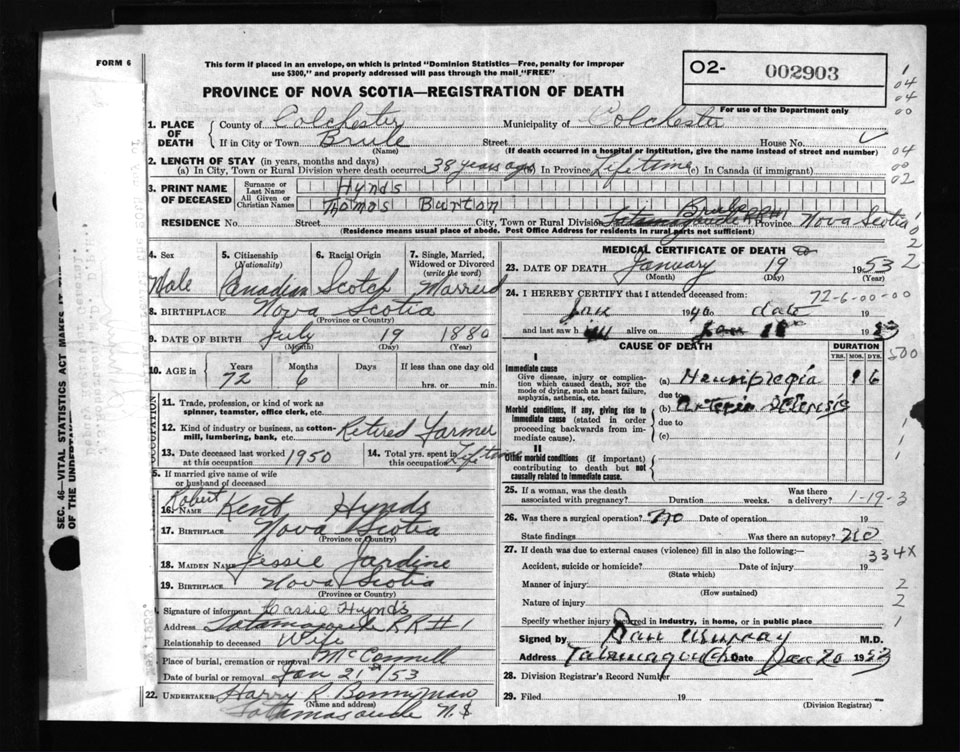 FORM 6
This form if placed in an envelope, on which is printed "Dominion Statistics—Free, penalty for improper
use $300," and properly addressed will pass through the mail "FREE"
PROVINCE OF NOVA SCOTIA—REGISTRATION OF DEATH
02- 002903
For use of the Department only
1. PLACE OF DEATH
County of Colchester Municipality of Colchester
If in City or Town Brule Street House No.
(Name) (If death occurred in a hospital or institution, give the name instead of street and number)
2. LENGTH OF STAY (in years, months and days)
(a) In City, Town or Rural Division where death occurred 38 years ago In Province Lifetime (c) In Canada (if immigrant)
3. PRINT NAME OF DECEASED
Surname or Last Name Hynds
All Given or Christian Names Thomas Burton
RESIDENCE No. Street City, Town or Rural Division Brule Tatamagouche RR#1 Province Nova Scotia
(Residence means usual place of abode. Post Office Address for residents in rural parts not sufficient)
4. Sex 5. Citizenship (Nationality) 6. Racial Origin 7. Single, Married, Widowed or Divorced (write the word)
Male Canadian Scotch Married
8. BIRTHPLACE Nova Scotia
(Province or Country)
9. DATE OF BIRTH July 19 1880
(Month) (Day) (Year)
10. AGE in Years Months Days If less than one day old
72 6 hrs. or min.
11. Trade, profession, or kind of work as
spinner, teamster, office clerk, etc.
12. Kind of industry or business, as cotton-
mill, lumbering, bank, etc. Retired Farmer
13. Date deceased last worked at this occupation 1950 14. Total yrs. spent in this occupation Lifetime
5. If married give name of wife
or husband of deceased
16. NAME Robert Kent Hynds
17. BIRTHPLACE Nova Scotia
(Province or Country)
18. MAIDEN NAME Jessie Jardine
19. BIRTHPLACE Nova Scotia
(Province or Country)
Signature of informant Cassie Hynds
Address Tatamagouche RR#1
Relationship to deceased Wife
Place of burial, cremation or removal McConnell
Date of burial or removal Jan 21st/53
22. UNDERTAKER Harry R. Bonnyman
(Name and address)
Tatamagouche N.S
MEDICAL CERTIFICATE OF DEATH
23. DATE OF DEATH January 19 1953
(Month) (Day) (Year)
24. I HEREBY CERTIFY that I attended deceased from: 72-6-00-00
Jan 1940 to date 19
and last saw h alive on Jan 18 1953
CAUSE OF DEATH DURATION
YRS. MOS. DYS.
I
Immediate cause
Give disease, injury or complica-
tion which caused death, NOT the
mode of dying, such as heart failure,
asphyxia, asthenia, etc.
(a) Hemiplegia
due to
Morbid conditions, if any, giving rise to
immediate cause (stated in order
proceeding backwards from im-
mediate cause).
(b) Arterio Sclerosis
due to
(c)
II
Other morbid conditions (if important)
contributing to death but not
causally related to immediate cause.
25. If a woman, was the death
associated with pregnancy? Duration weeks. Was there a delivery? 1-19-3
26. Was there a surgical operation? no Date of operation 19
State findings Was there an autopsy? no
27. If death was due to external causes (violence) fill in also the following:— 334X
Accident, suicide or homicide? Date of injury 19
(State which)
Manner of injury 2
(How sustained)
Nature of injury 2
Specify whether injury occurred in industry, in home, or in public place 1
Signed by Dan Murray M.D.
Address Tatamagouche Date Jan 20 1953
28. Division Registrar's Record Number
29. Filed 19
(Division Registrar)
SEC. 46—VITAL STATISTICS ACT MAKES IT THE
OF THE UNDERTAKER
OCCUPATION